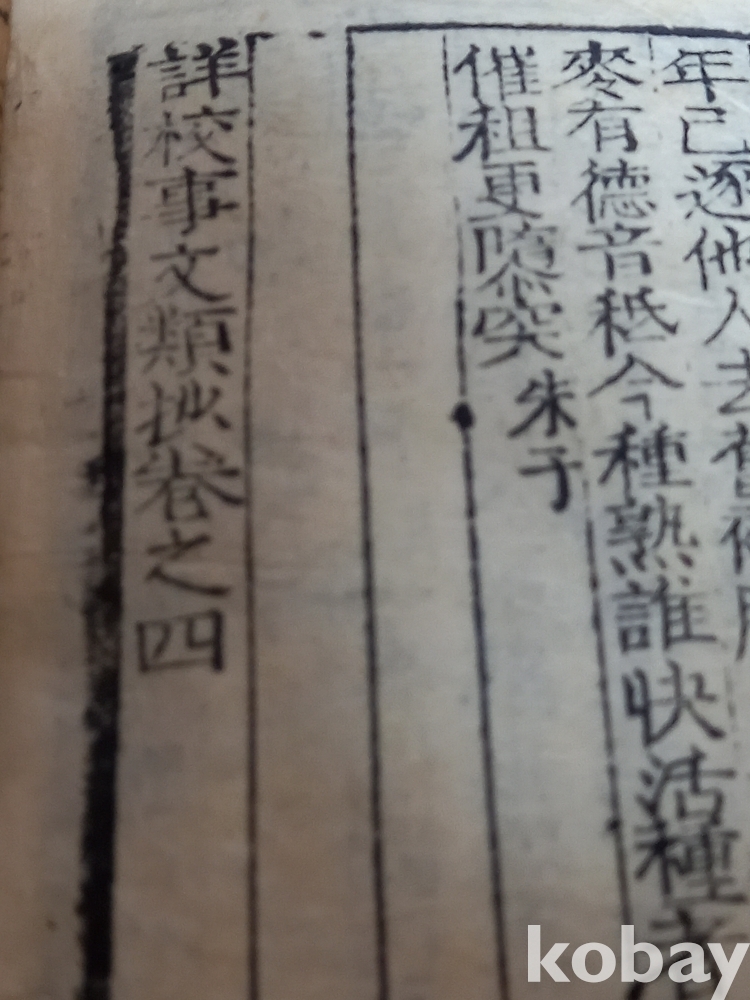 年已逐他人去舊
麥有德音秪今種熟誰快活種
催租更隳突 朱子
詳校事文類抄卷之四
kobay